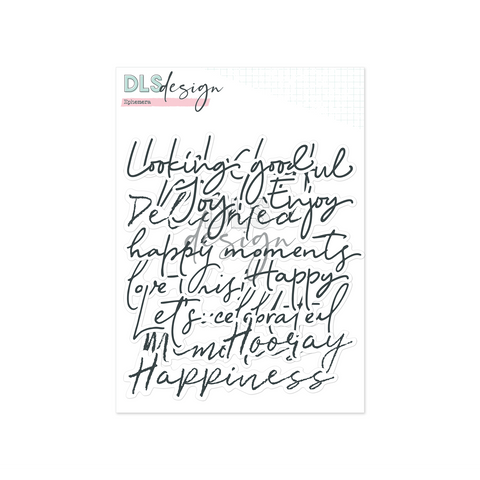 DLSdesign
Ephemera
Looking good
Joy! Enjoy
Delighted
design
happy moments
love this Happy
Let's celebrate
Hooray
Happiness